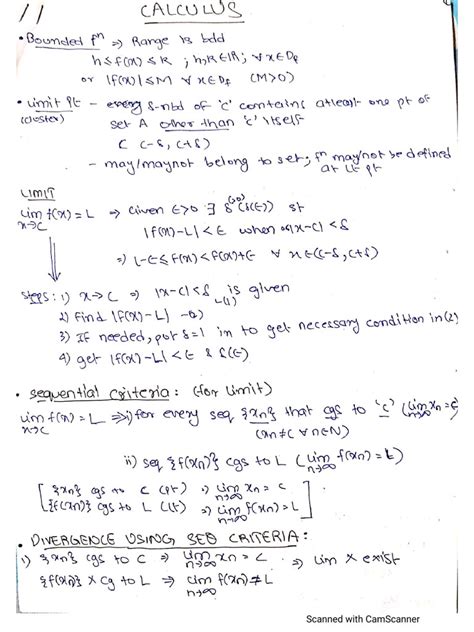 11
CALCULUS
• Bounded fⁿ => Range is bdd
h ≤ f(x) ≤ k ; h,k∈IR; ∀ x∈D_f
or |f(x)| ≤ M ∀ x∈D_f (M>0)
• Limit Pt - every δ-nbd of 'c' contains atleast one pt of
(cluster) set A other than 'c' itself
C (-δ, c+δ)
- may/maynot belong to set; fⁿ may/not be defined
at Lt pt
LIMIT
lim f(x) = L => Given ε>0 ∃ δ^(>0) (δ(ε)) st
x→c
|f(x)-L| < ε when 0<|x-c| < δ
=> L-ε ≤ f(x) < f(x)+ε ∀ x∈(c-δ, c+δ)
Steps: 1) x→c => |x-c|<δ is given
-(1)
2) Find |f(x)-L| -(2)
3) If needed, put δ=1 in to get necessary condition in (2)
4) get |f(x)-L|<ε & δ(ε)
• sequential criteria: (for limit)
lim f(x) = L => i) for every seq {xn} that cgs to 'c' (lim xn = c)
x→c n→∞
(xn ≠ c ∀ n∈N)
ii) seq {f(xn)} cgs to L (lim f(xn) = L)
n→∞
[ {xn} cgs to c (pt) => lim xn = c
n→∞
{f(xn)} cgs to L (lt) => lim f(xn) = L ]
n→∞
• DIVERGENCE USING SEQ CRITERIA:
1) {xn} cgs to c => lim xn = c
n→∞
=> lim X exist
{f(xn)} X cg to L => lim f(xn) ≠ L
n→∞
Scanned with CamScanner